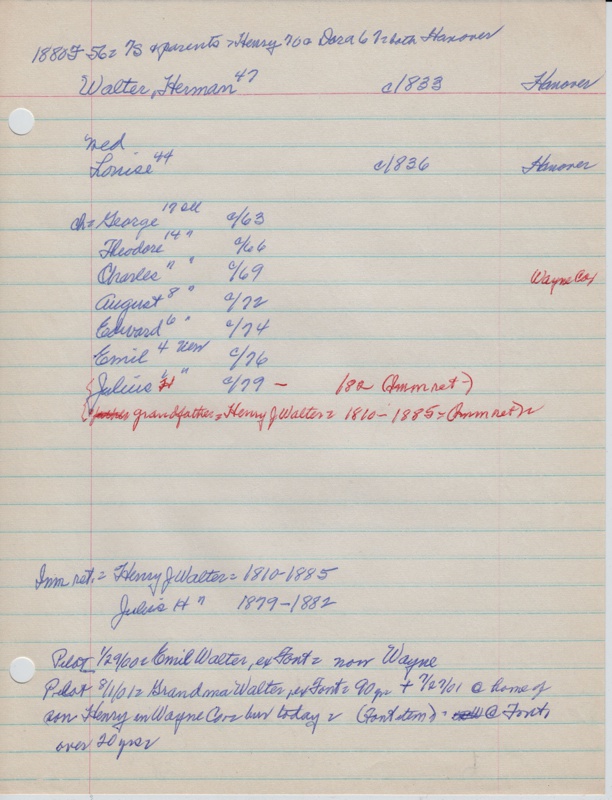 1880 F 56 = 73 & parents = Henry 70 & Dora 67 = both Hanover
Walter, Herman 47 c/1833 Hanover
wed
Louise 44 c/1836 Hanover
ch = George 17 Ill c/63
Theodore 14 " c/66
Charles " " c/69
Wayne Co
August 8 " c/72
Edward 6 " c/74
Emil 4 Neb c/76
Julius "H" " c/79 - 182 (Imm ret-)
grandfather = Henry J Walter = 1810-1885 = (Imm ret)
Imm ret. = Henry J Walter = 1810-1885
Julius H " 1879-1882
Pilot 1/29/00 = Emil Walter, ex Font = now Wayne
Pilot 8/1/01 = Grandma Walter, ex Font = 90 yr + 7/27/01 @ home of
son Henry in Wayne Co = bur today = (Font item) = @ Font
over 20 yrs